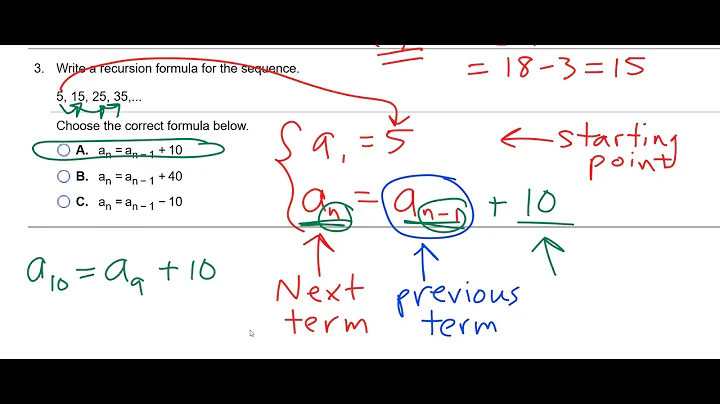 = 18 - 3 = 15
3. Write a recursion formula for the sequence.
5, 15, 25, 35,...
Choose the correct formula below.
A. aₙ = aₙ₋₁ + 10
B. aₙ = aₙ₋₁ + 40
C. aₙ = aₙ₋₁ − 10
a₁ = 5 ← starting point
aₙ = aₙ₋₁ + 10
Next term
previous term
a₁₀ = a₉ + 10